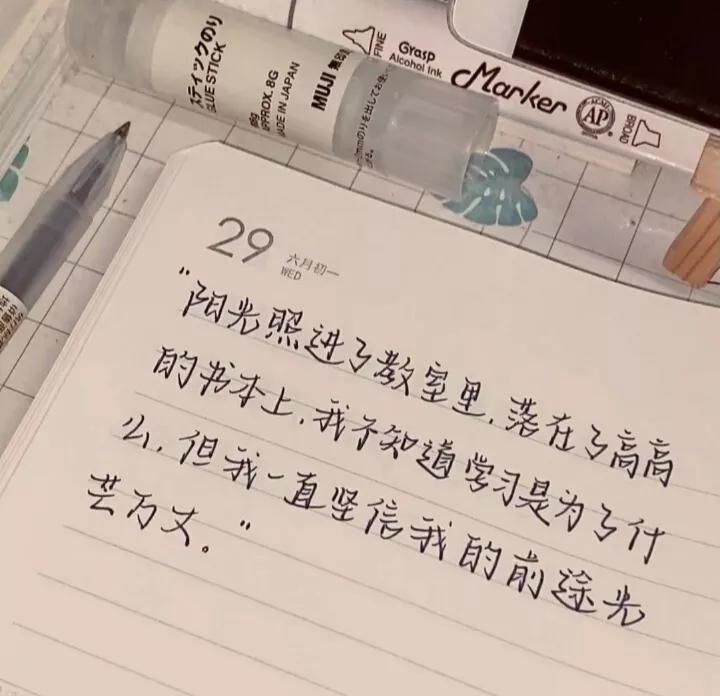 スティックのり
GLUE STICK
APPROX. 8G
MADE IN JAPAN
MUJI 無印良
FINE
Grasp
Alcohol Ink
Marker
ACME
AP
BROAD
29 六月初一
WED
"阳光照进了教室里，落在了高高
的书本上，我不知道学习是为了什
么，但我一直坚信我的前途光
芒万丈。"